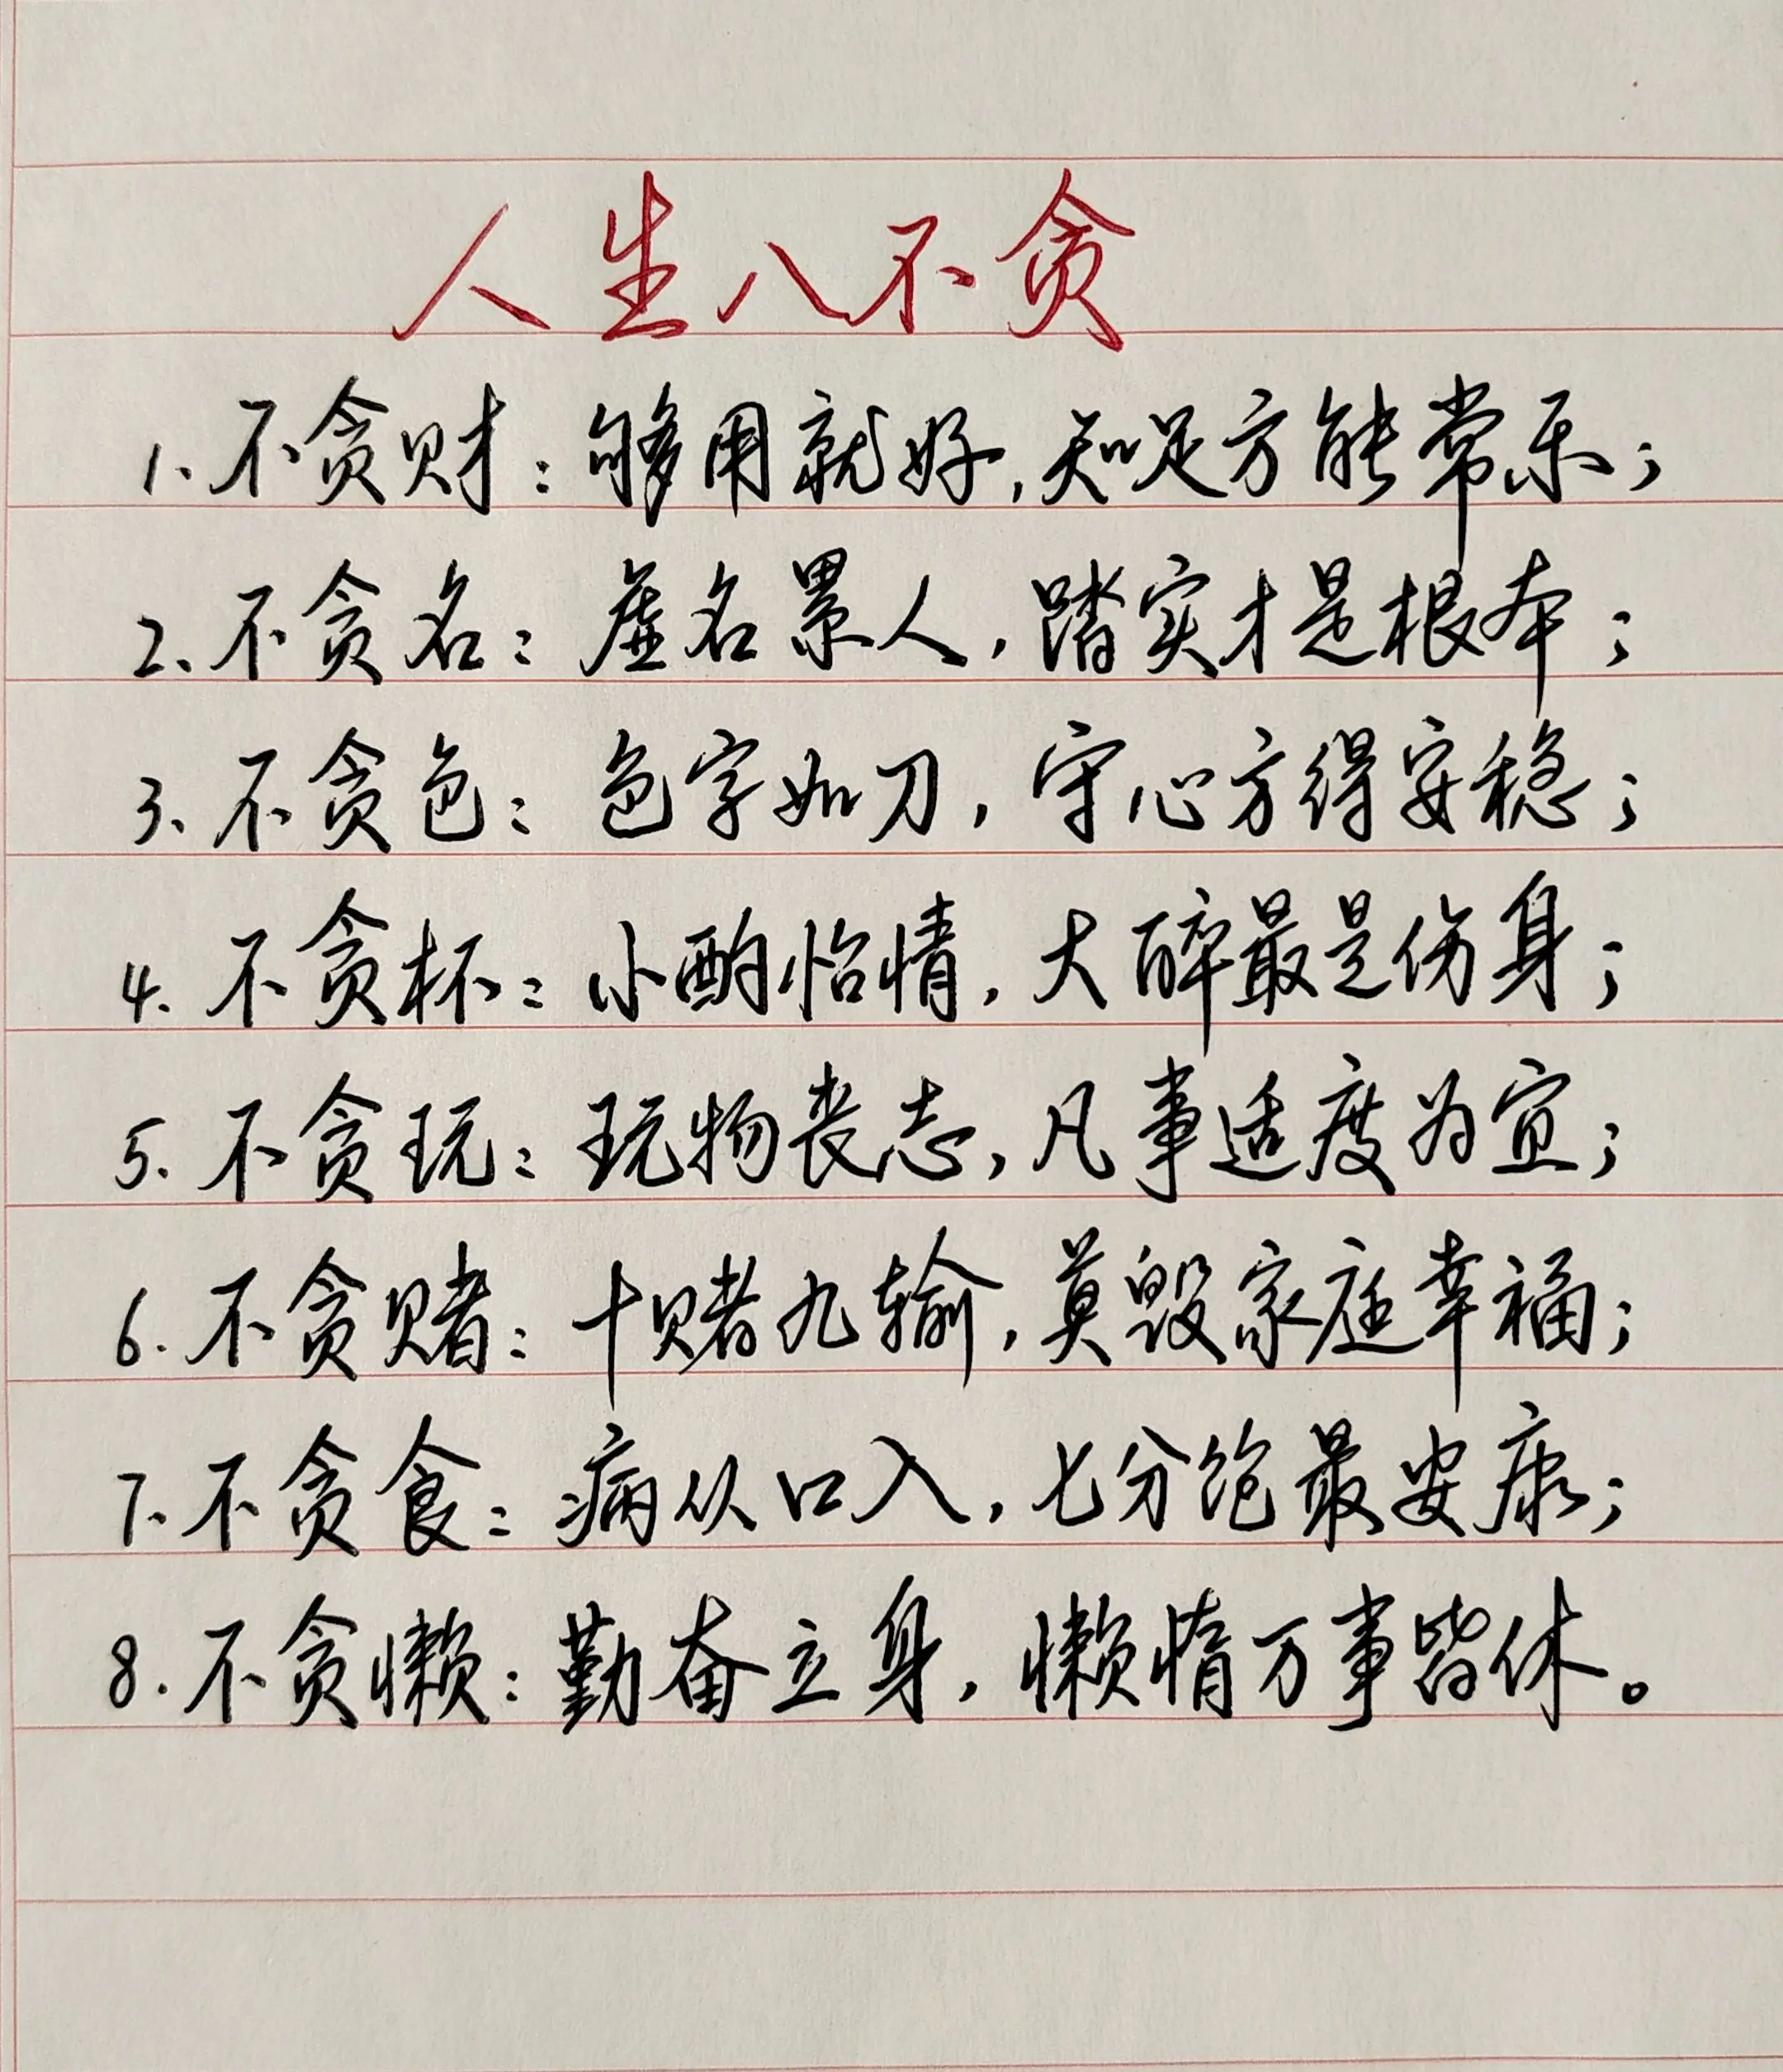 人生八不贪
1、不贪财：够用就好，知足方能常乐；
2、不贪名：虚名累人，踏实才是根本；
3、不贪色：色字如刀，守心方得安稳；
4、不贪杯：小酌怡情，大醉最是伤身；
5、不贪玩：玩物丧志，凡事适度为宜；
6、不贪赌：十赌九输，莫毁家庭幸福；
7、不贪食：病从口入，七分饱最安康；
8、不贪懒：勤奋立身，懒惰万事皆休。